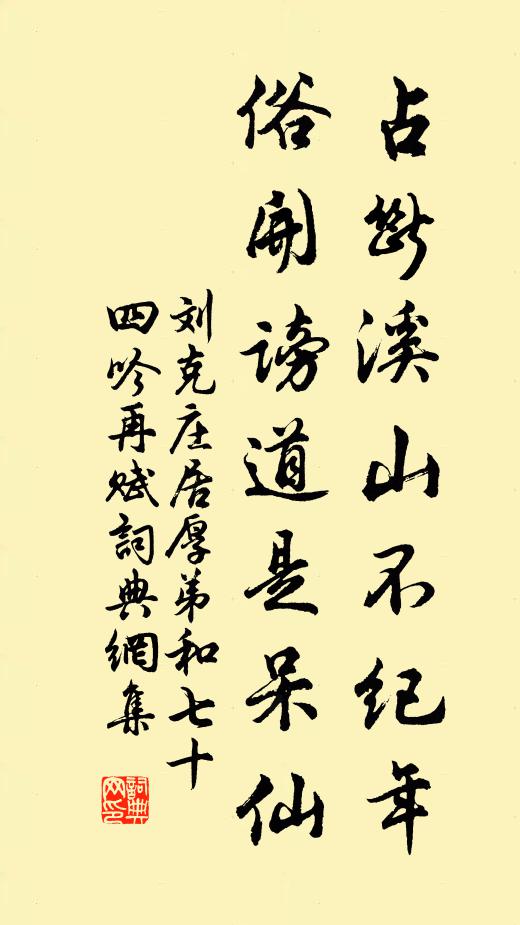 占断溪山不纪年
俗開謗道是呆仙
刘克庄居厚弟和七十
四吟再赋詞典網集
詞典网印